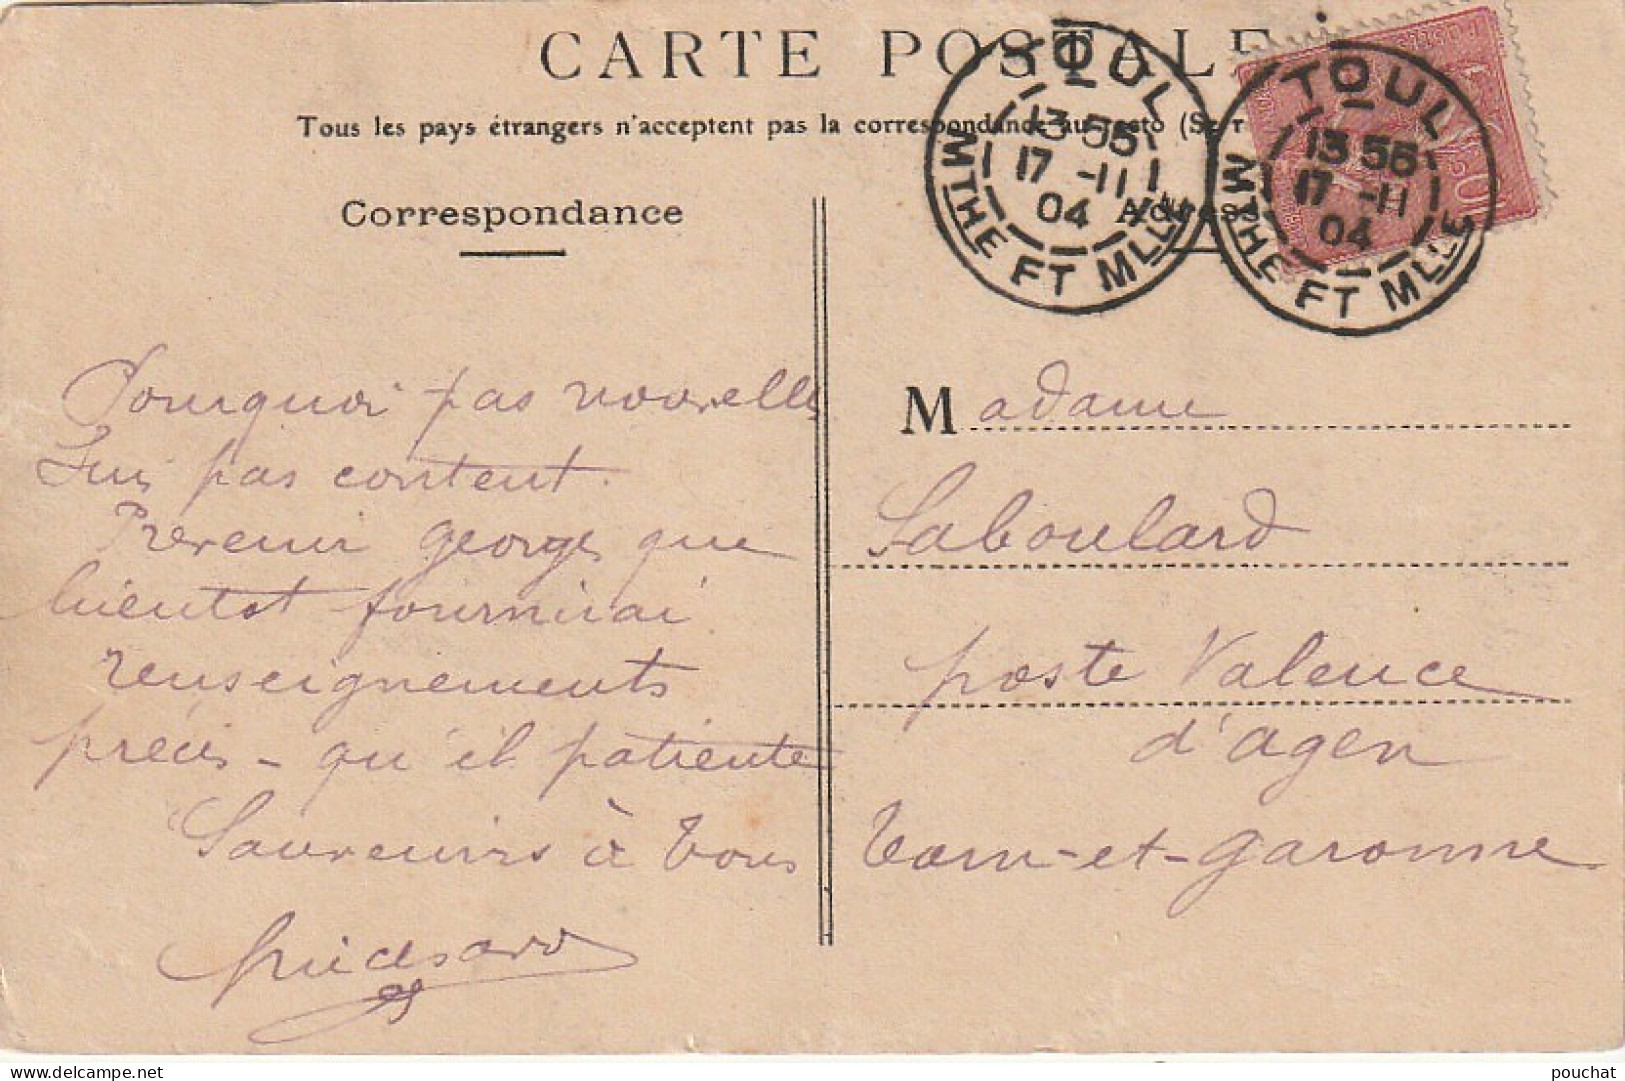 CARTE POSTALE
Tous les pays étrangers n'acceptent pas la correspondance au recto (Se r
Correspondance
Adresse
TOUL
13 55
17 -11
04
MTHE ET MLLE
TOUL
13 55
17 -11
04
MTHE ET MLLE
Pourquoi pas nouvelles
Suis pas content.
Prevenir georges que
bientot fournirai
renseignements
précis - qu'il patiente
Souvenirs à Tous
Madame
Laboulard
poste Valence
d'agen
Tarn-et-garonne
delcampe.net
pouchat